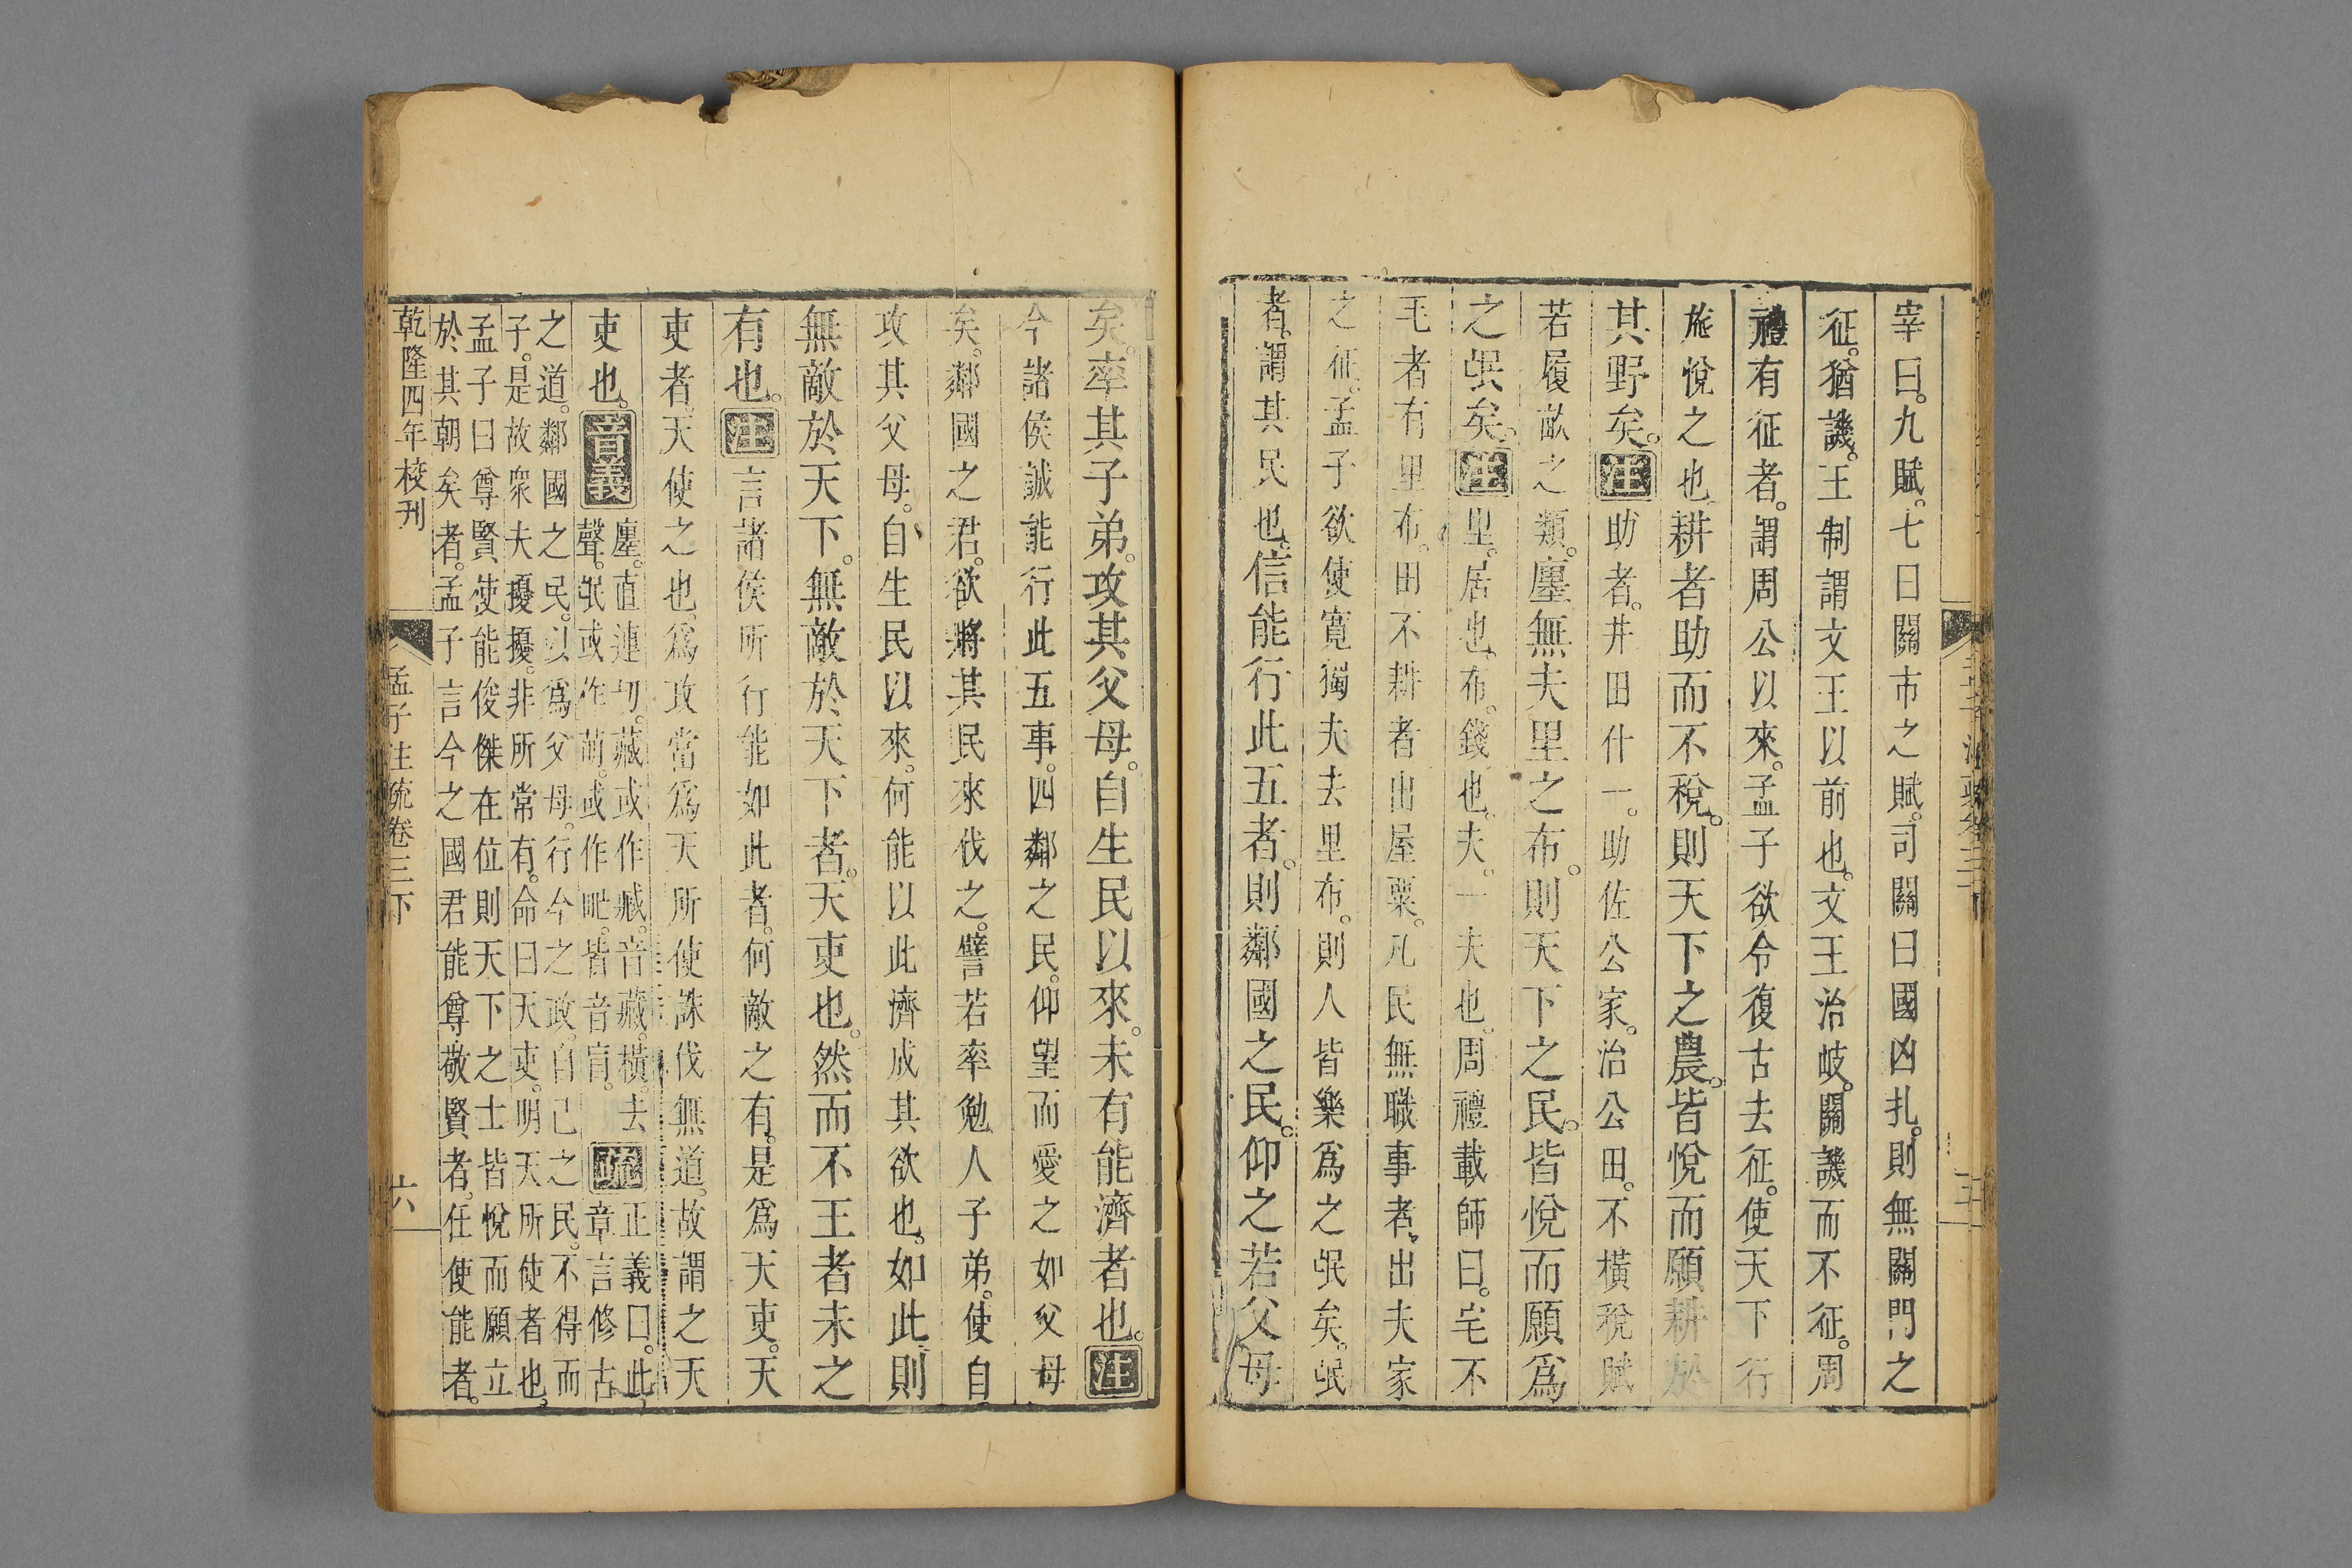 宰曰。九賦。七曰關市之賦。司關曰國凶札。則無關門之
征。猶譏。王制謂文王以前也。文王治岐。關譏而不征。周
禮有征者。謂周公以來。孟子欲令復古去征。使天下行
旅悅之也。耕者助而不稅。則天下之農。皆悅而願耕於
其野矣。注助者。井田什一。助佐公家。治公田。不橫稅賦
若履畝之類。廛無夫里之布。則天下之民。皆悅而願爲
之氓矣。注里。居也。布。錢也。夫。一夫也。周禮載師曰。宅不
毛者有里布。田不耕者出屋粟。凡民無職事者。出夫家
之征。孟子欲使寬獨夫去里布。則人皆樂爲之氓矣。氓
者。謂其民也。信能行此五者。則鄰國之民。仰之若父母
矣。率其子弟。攻其父母。自生民以來。未有能濟者也。注
今諸侯誠能行此五事。四鄰之民。仰望而愛之如父母
矣。鄰國之君。欲將其民來伐之。譬若率勉人子弟。使自
攻其父母。自生民以來。何能以此濟成其欲也。如此則
無敵於天下。無敵於天下者。天吏也。然而不王者未之
有也。注言諸侯所行能如此者。何敵之有。是爲天吏。天
吏者。天使之也。爲政當爲天所使誅伐無道。故謂之天
吏也。音義廛。直連切。藏或作臧。音藏。橫。去
聲。氓或作萌。或作甿。皆音盲。疏正義曰。此
章言修古
之道。鄰國之民。以爲父母。行今之政。自己之民。不得而
子。是故衆夫擾擾。非所常有。命曰天吏。明天所使者也。
孟子曰尊賢使能俊傑在位則天下之士皆悅而願立
於其朝矣者。孟子言今之國君能尊敬賢者。任使能者。
乾隆四年校刊
孟子注疏卷三下
六